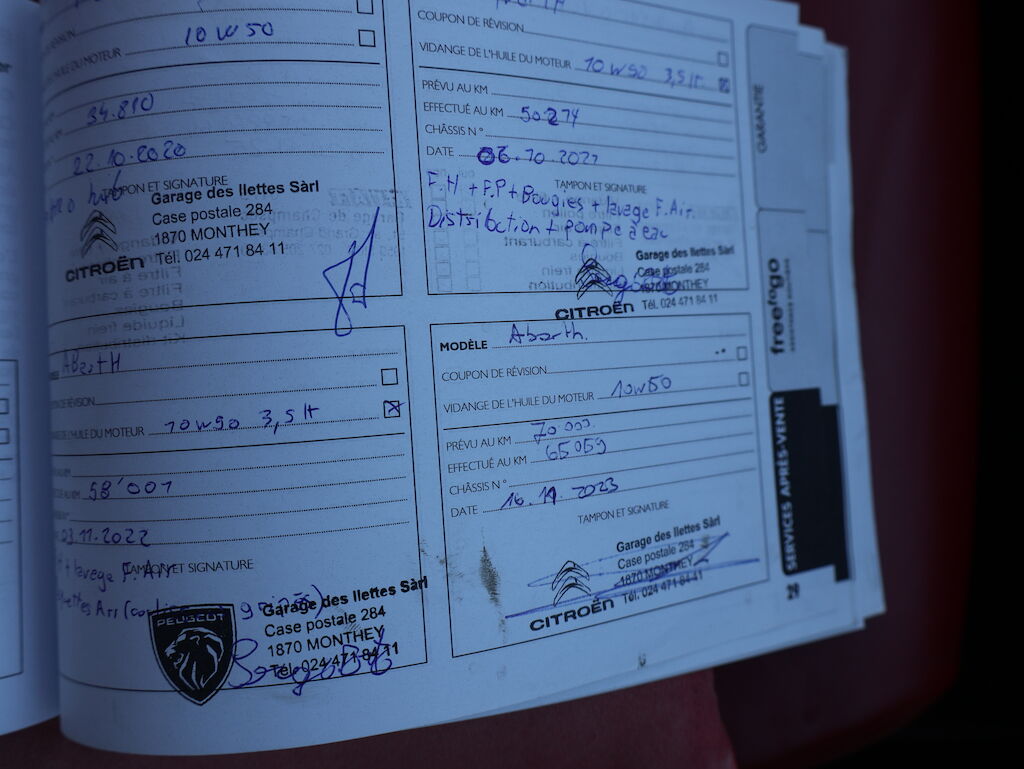 10 W 50
HUILE DU MOTEUR
34.810
22.10.2020
TAMPON ET SIGNATURE
Garage des Ilettes Sàrl
Case postale 284
1870 MONTHEY
Tél. 024 471 84 11
CITROËN
COUPON DE RÉVISION
VIDANGE DE L'HUILE DU MOTEUR 10 W 50 3,5 lt.
PRÉVU AU KM
EFFECTUÉ AU KM 50274
CHÂSSIS N°
DATE 06.10.2021
TAMPON ET SIGNATURE
F.H + F.P + Bougies + lavage F. Air.
Distribution + pompe à eau
Garage des Ilettes Sàrl
Case postale 284
1870 MONTHEY
Tél. 024 471 84 11
CITROËN
AbartH
10 W 50 3,5 lt
HUILE DU MOTEUR
58'001
03.11.2022
TAMPON ET SIGNATURE
+ lavage F. Air
PEUGEOT
Garage des Ilettes Sàrl
Case postale 284
1870 MONTHEY
Tél. 024 471 84 11
MODÈLE Abarth.
COUPON DE RÉVISION
VIDANGE DE L'HUILE DU MOTEUR 10W50
PRÉVU AU KM 70 000
EFFECTUÉ AU KM 65059
CHÂSSIS N°
DATE 16.11.2023
TAMPON ET SIGNATURE
Garage des Ilettes Sàrl
Case postale 284
1870 MONTHEY
Tél. 024 471 84 11
CITROËN
GARANTIE
free2go
SERVICES APRÈS-VENTE
29